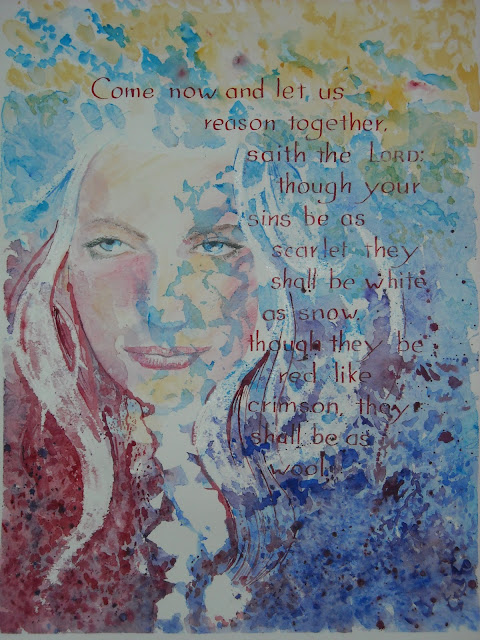 Come now and let us
reason together,
saith the LORD:
though your
sins be as
scarlet they
shall be white
as snow
though they be
red like
crimson, they
shall be as
wool.